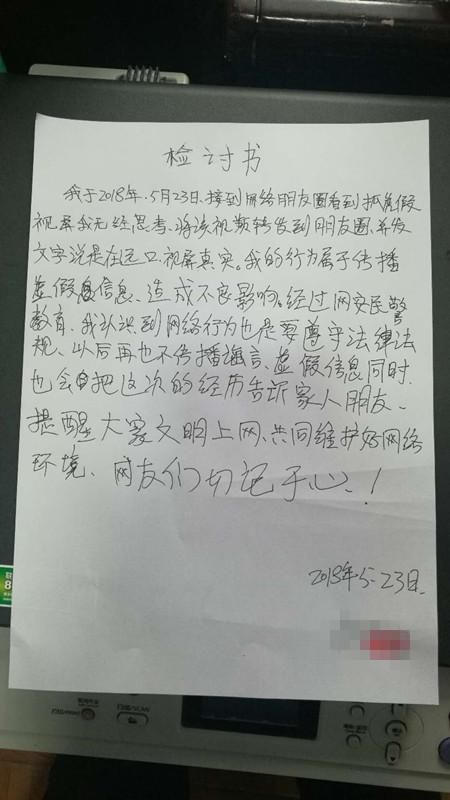 检讨书
我于2018年.5月23日.接到网络朋友圈看到抓危假
视屏我无经思考.将该视频转发到朋友圈.并发
文字说是在远口.视屏真实.我的行为属于传播
虚假息信息、造成不良影响.经过网安民警
教育.我认识到网络行为也是要遵守法律法
规、以后再也不传播谣言、虚假信息同时.
也会把这次的经历告诉家人朋友、
提醒大家文明上网、共同维护好网络
环境、网友们切记于心、!
2018年.5-23日.
扫描/SCAN